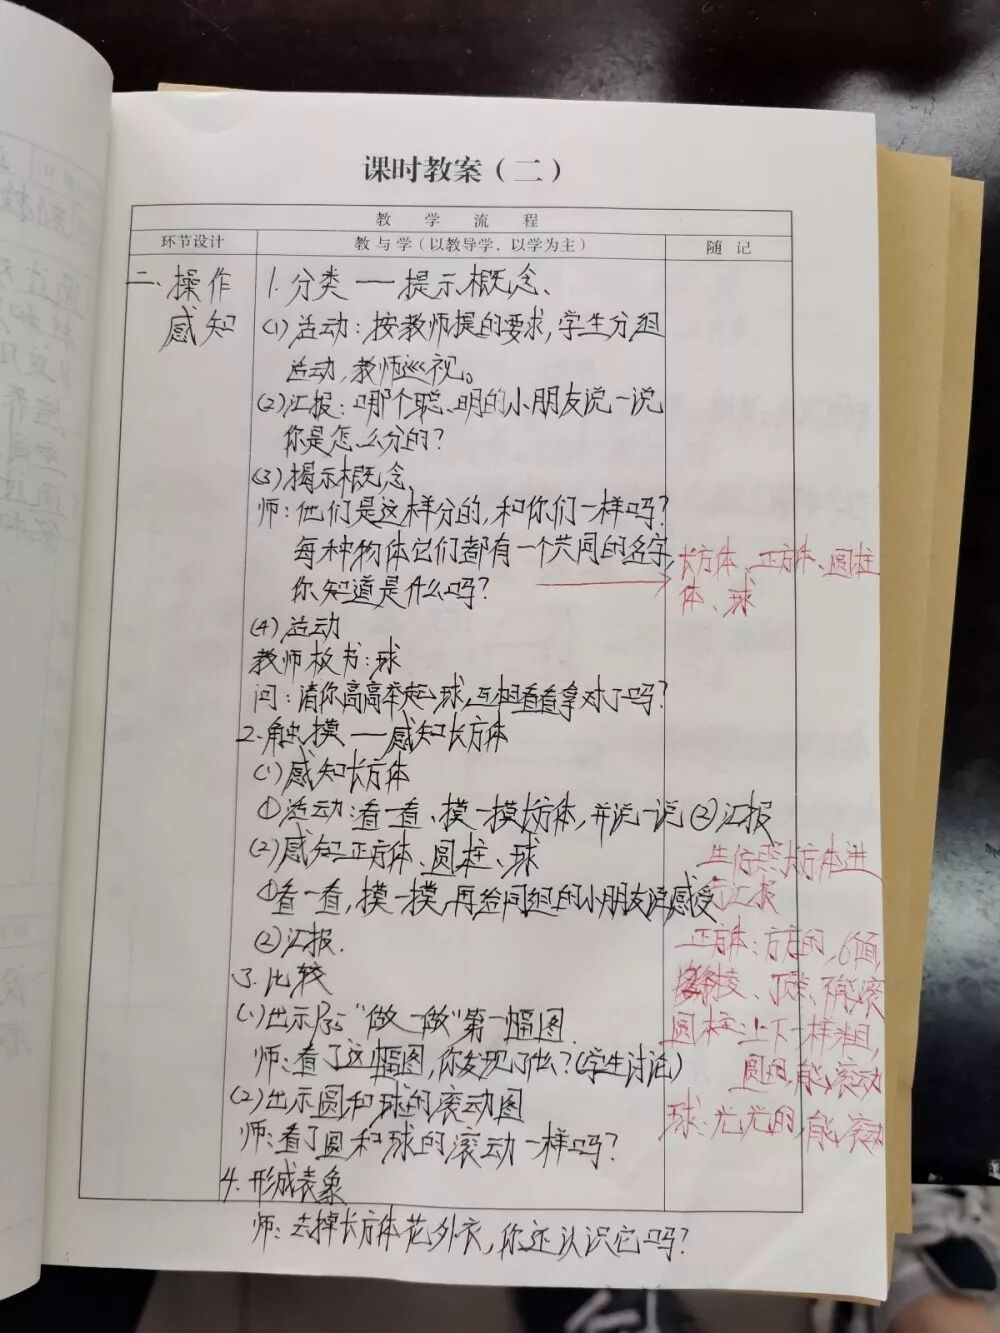 课时教案（二）
教 学 流 程
环节设计
教与学（以教导学，以学为主）
随 记
二、操作
感知
1. 分类 — 提示概念、
(1) 活动：按教师提的要求，学生分组
活动，教师巡视。
(2) 汇报：哪个聪明的小朋友说一说
你是怎么分的？
(3) 揭示概念、
师：他们是这样分的，和你们一样吗？
每种物体它们都有一个共同的名字，
你知道是什么吗？
长方体、正方体、圆柱
体、球
(4) 活动
教师板书：球
问：请你高高举起球，互相看看拿对了吗？
2. 触摸 — 感知长方体
(1) 感知长方体
①活动：看一看、摸一摸长方体，并说一说 ②汇报
(2) 感知正方体、圆柱、球
①看一看，摸一摸，再给同组的小朋友说感受
②汇报.
生仿照长方体进
行汇报
正方体：方方的，6面，
棱、顶点、不能滚
圆柱：上下一样粗，
圆的，能滚动
球：光光的，能滚动
3. 比较
(1) 出示P35“做一做”第一幅图.
师：看了这幅图，你发现了什么？(学生讨论)
(2) 出示圆和球的滚动图
师：看了圆和球的滚动一样吗？
4. 形成表象
师：去掉长方体花外衣，你还认识它吗？